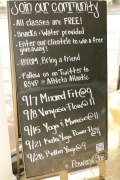 Join our Community
- All classes are FREE!
- Snacks & Water provided
- Enter our clientele to win a free giveaway!
- BYOM: Bring a friend
- Follow us on Twitter to RSVP @ Athleta Atlantic
9/7 Mixed Fit@9
9/8 Vinyasa Flow@11
9/15 Yoga & Mimosa@11
9/21 Yoga Flow
9/28 Yoga@9